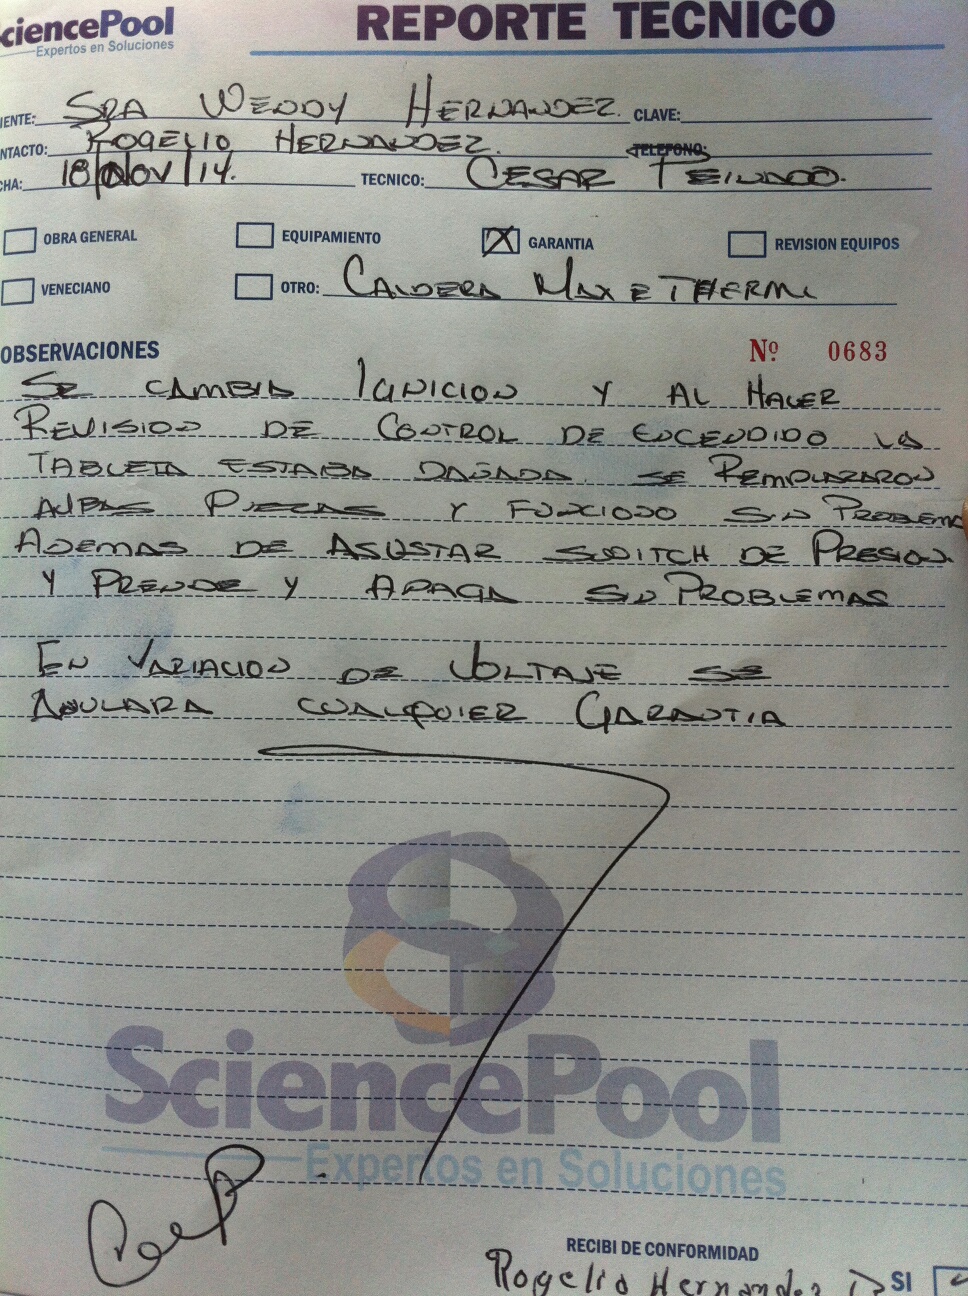 SciencePool
Expertos en Soluciones
REPORTE TECNICO
IENTE: SRA WENDY HERNANDEZ. CLAVE:
NTACTO: ROGELIO HERNANDEZ. TELEFONO:
CHA: 18/NOV/14. TECNICO: CESAR
OBRA GENERAL EQUIPAMIENTO GARANTIA REVISION EQUIPOS
VENECIANO OTRO: CALDERA MAX E THERM
OBSERVACIONES Nº 0683
SE CAMBIA IGNICION Y AL HACER
REVISION DE CONTROL DE ENCENDIDO LA
TABLETA ESTABA DAÑADA. SE REMPLAZARON
AMBAS PIEZAS Y FUNCIONO SIN PROBLEMA
ADEMAS DE AJUSTAR SWITCH DE PRESION.
Y PRENDE Y APAGA SIN PROBLEMAS
EN VARIACION DE VOLTAJE SE
ANULARA CUALQUIER GARANTIA
SciencePool
Expertos en Soluciones
RECIBI DE CONFORMIDAD
Rogelio Hernandez D SI